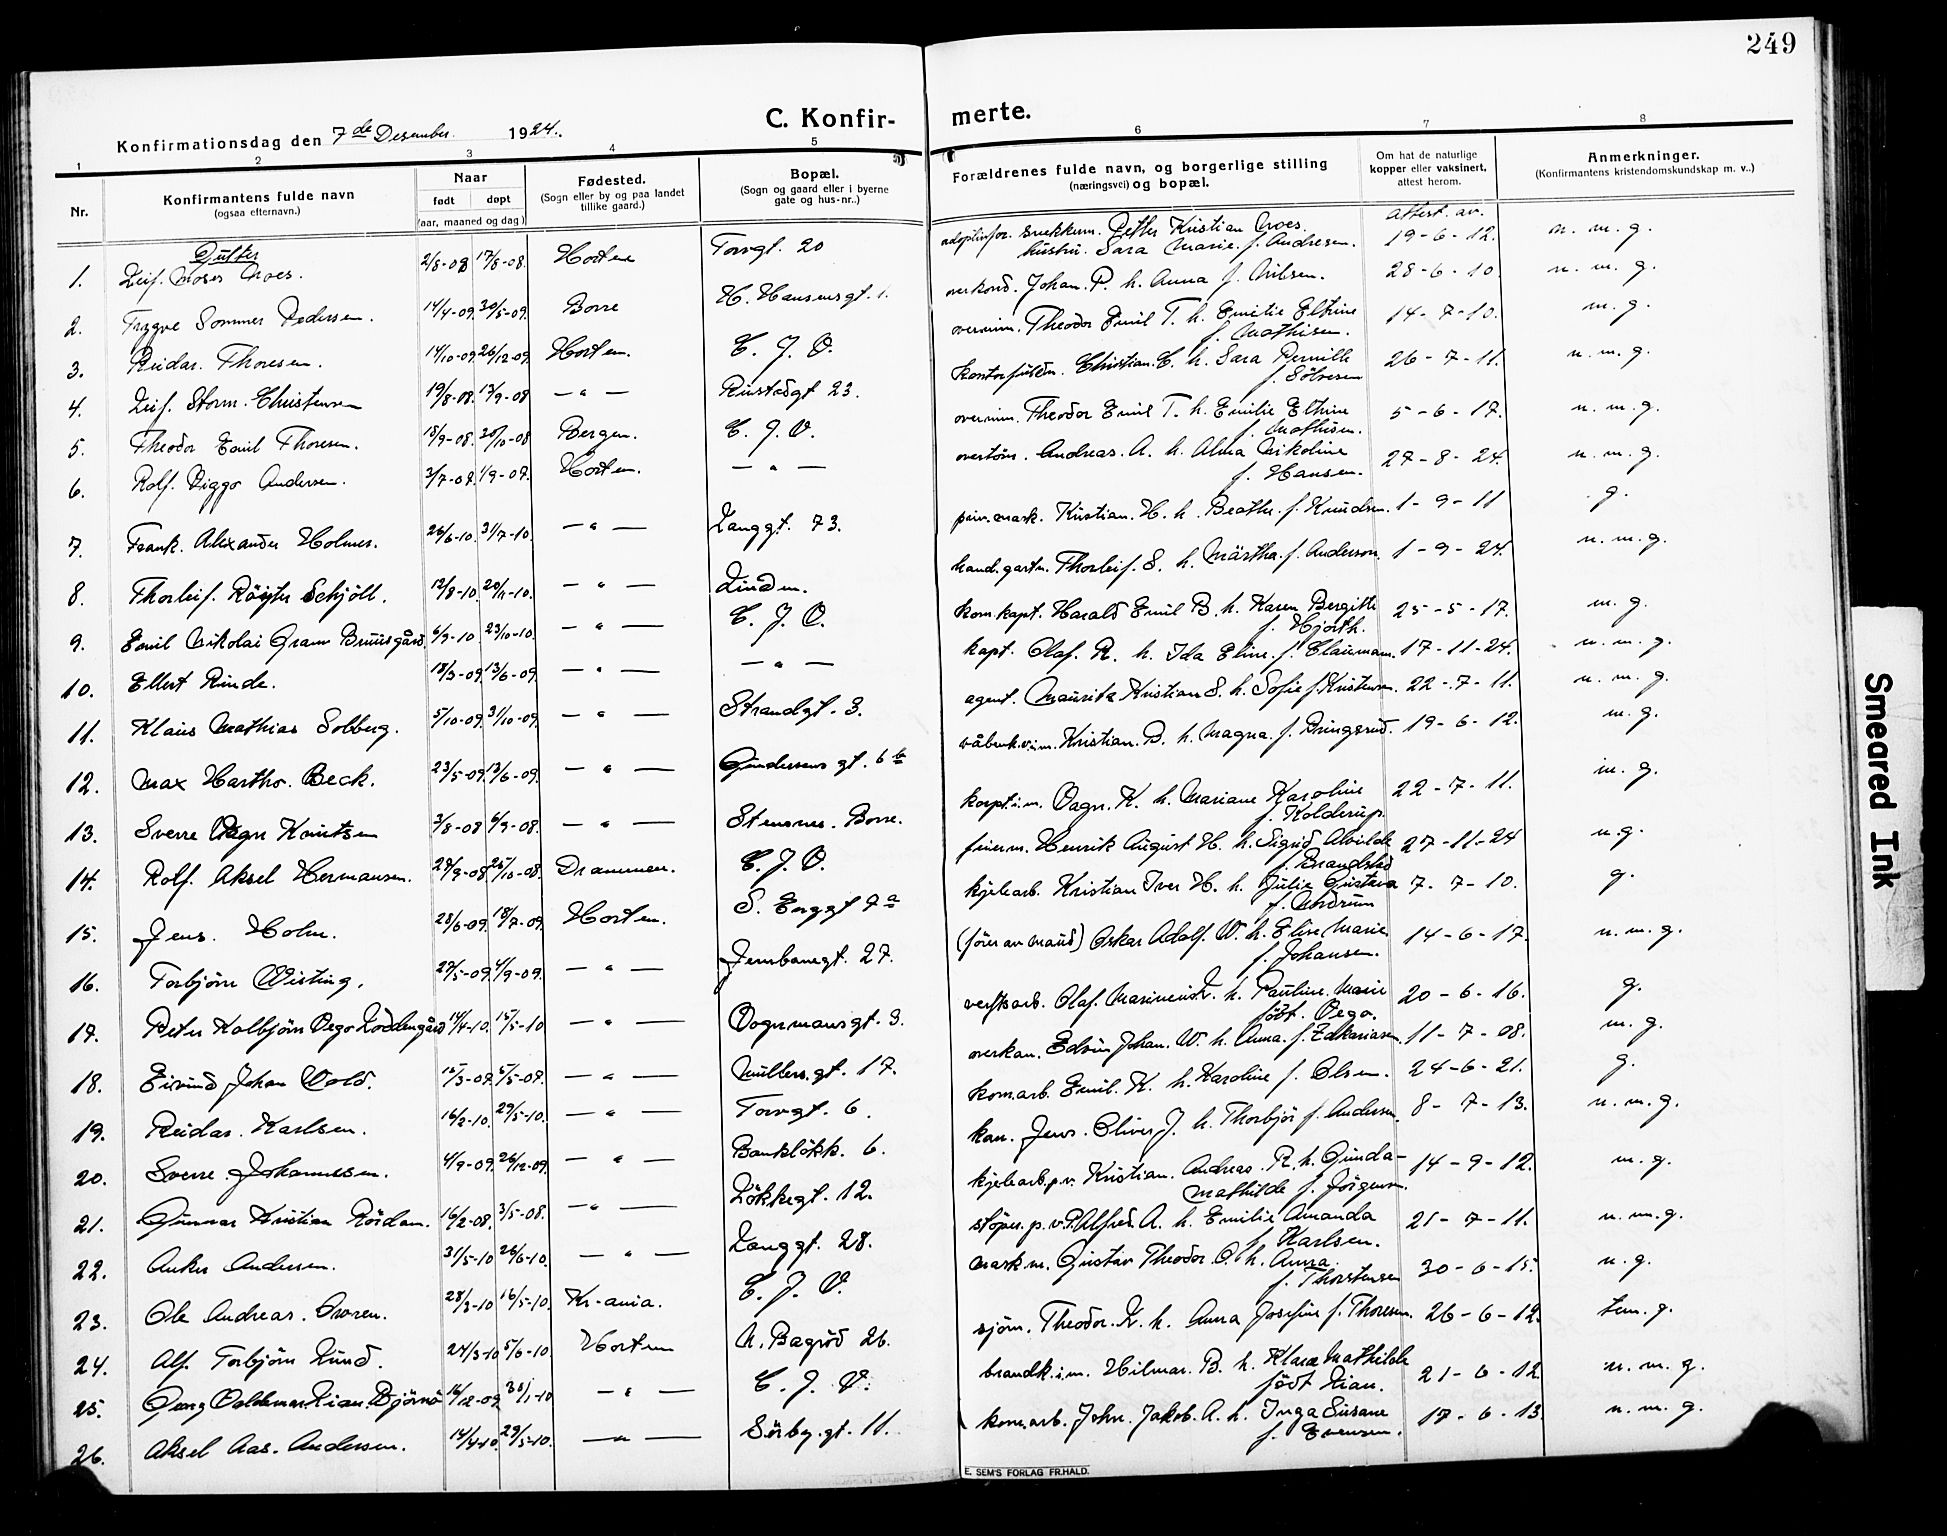 249
C. Konfir-
merte.
Konfirmationsdag den 7de Desember 1924.
1
2
3
4
5
6
7
8
Nr.
Konfirmantens fulde navn
(ogsaa efternavn.)
Naar
født døpt
(aar, maaned og dag)
Fødested.
(Sogn eller by og paa landet
tillike gaard.)
Bopæl.
(Sogn og gaard eller i byerne
gate og hus-nr..)
Forældrenes fulde navn, og borgerlige stilling
(næringsvei) og bopæl.
Om hat de naturlige
kopper eller vaksinert,
attest herom.
Anmerkninger.
(Konfirmantens kristendomskundskap m. v.)
Gutter
attest. av.
1. Leif. Moses Moes. 2/8-08 17/8-08. Horten Torvgt. 20 Petter Kristian Moes. 19-6-12. n. m. g.
hustru. Sara Marie. f. Andresen.
2. Trygve Sommer Pedersen. 14/4-09. 30/5-09. Borre H. Hansensgt. 1. Johan. P. h. Anna f. Nilsen. 28-6-10. n. m. g.
3. Reidar. Thoresen. 14/10-09. 26/12-09. Horten. C. J. O. Theodor Emil T. h. Emilie Eltrine 14-7-10. m. g.
f. Mathisen.
4. Leif. Storm. Christensen 19/8-08. 13/9-08 — " — Rustadgt 23. Christian. C. h. Sara Pernille 26-7-11. n. m. g.
5. Theodor Emil Thoresen. 18/9-08. 20/10-08 Bergen. C. J. O. Theodor Emil T. h. Emilie Eltrine 5-6-17. n. m. g.
f. Mathisen.
6. Rolf. Viggo Andersen. 3/7-09. 1/9-09. Horten. — " — Andreas. A. h. Alma Nikoline 27-8-24. n. m. g.
f. Hansen.
7. Frank. Alexander Holmes. 26/6-10. 31/7-10. — " — Langgt. 73. Kristian. H. h. Beathe. f. Knudsen. 1-9-11 g.
8. Thorleif. Schjöll. 12/8-10. 20/11-10. — " — Linden. Thorleif. S. h. Märtha. f. Anderson. 1-9-24. n. m. g.
9. Emil Nikolai Gram Bruusgård. 6/9-10 23/10-10. — " — C. J. O. kom.kapt. Harald Emil B. h. Karen Bergitte 25-5-17. m. g.
f. Hjorth.
10. Ellert Rinde. 18/3-09. 13/6-09. — " — — " — kapt. Olaf. R. h. Ida Eline. f. 17-11-24. n. m. g.
11. Klaus Mathias Solberg. 5/10-09. 31/10-09. — " — Strandgt. 3. agent. Mauritz Kristian S. h. Sofie f. Kristensen. 22-7-11. n. m. g.
12. Max Beck. 23/5-09. 13/6-09. — " — Gundersens gt. 6 b Kristian. B. h. Magna. f. Bringsrud. 19-6-12. m. g.
13. Sverre Vagn Knutsen 3/8-08 6/9-08. — " — Stensnes. Borre. Vagn. K. h. Mariane Karoline 22-7-11. m. g.
f. Kolderup.
14. Rolf. Aksel Hermansen. 29/9-08 25/10-08. Drammen. C. J. O. Henrik August H. h. Sigrid Alvilde 27-11-24 n. g.
15. Jens. Holm. 28/6-09. 18/7-09 Horten. S. Enggt 7 a kjelearb. Kristian Iver H. h. Julie Gustava 7-7-10. g.
16. Torbjørn Wisting. 29/5-09. 4/9-09. — " — Jernbanegt. 27. (förer av Maud) Oskar Adolf. W. h. Eline Marie 14-6-17. n. m. g.
f. Johansen.
17. Peter Kolbjörn Oego Loddengård 14/4-10. 15/5-10 — " — Vognmansgt. 3. verftsarb. Olaf. h. Pauline Marie 20-6-16. g.
född. Oego.
18. Eivind Johan Wold. 12/3-09. 5/5-09. — " — Müllers.gt. 17. Edvin Johan. W. h. Anna. f. Zakariasen. 11-7-08. m. g.
19. Reidar. Karlsen. 16/2-10. 29/5-10. — " — Torvgt. 6. kom.arb. Emil. K. h. Karoline f. Olsen. 24-6-21. g.
20. Sverre. Johannessen. 4/9-09. 26/12-09. — " — Bankløkk. 6. Jens. Oliver J. h. Thorbjör f. Andersen. 8-7-13. n. m. g.
21. Gunnar Kristian Rördam. 16/2-08. 3/5-08. — " — Løkkegt. 12. kjelearb.p.v. Kristian. Andreas. R. h. Gunda- 14-9-12. m. g.
mathilde f. Jörgensen.
22. Anker Andersen. 31/5-10 26/6-10. — " — Langgt. 28. Alfred. A. h. Emilie Amanda 21-7-11. n. m. g.
f. Karlsen.
23. Ole Andreas. 28/3-10 16/5-10. Kr-ania. C. J. O. Gustav Theodor O. h. Anna 30-6-15. n. g.
f. Thorstensen
24. Alf. Torbjörn Lund. 24/3-10 5/6-10. Horten N. Bagröd 26. sjöm. Theodor. L. h. Anna Josefine f. Thoresen. 26-6-12. tem. g.
25. Georg Valdemar Kian. Bjørnö 16/12-09 30/1-10 — " — C. J. O. Hilmar. B. h. Klara Mathilde 21-6-12. n. m. g.
född Kian.
26. Aksel Aas. Andersen. 14/4-10. 29/5-10. — " — Sörby.gt. 11. kom.arb. John. Jakob. A. h. Inga Susane 17-6-13. n. m. g.
f. Evensen.
E. SEM'S FORLAG FR.HALD.
Smeared Ink